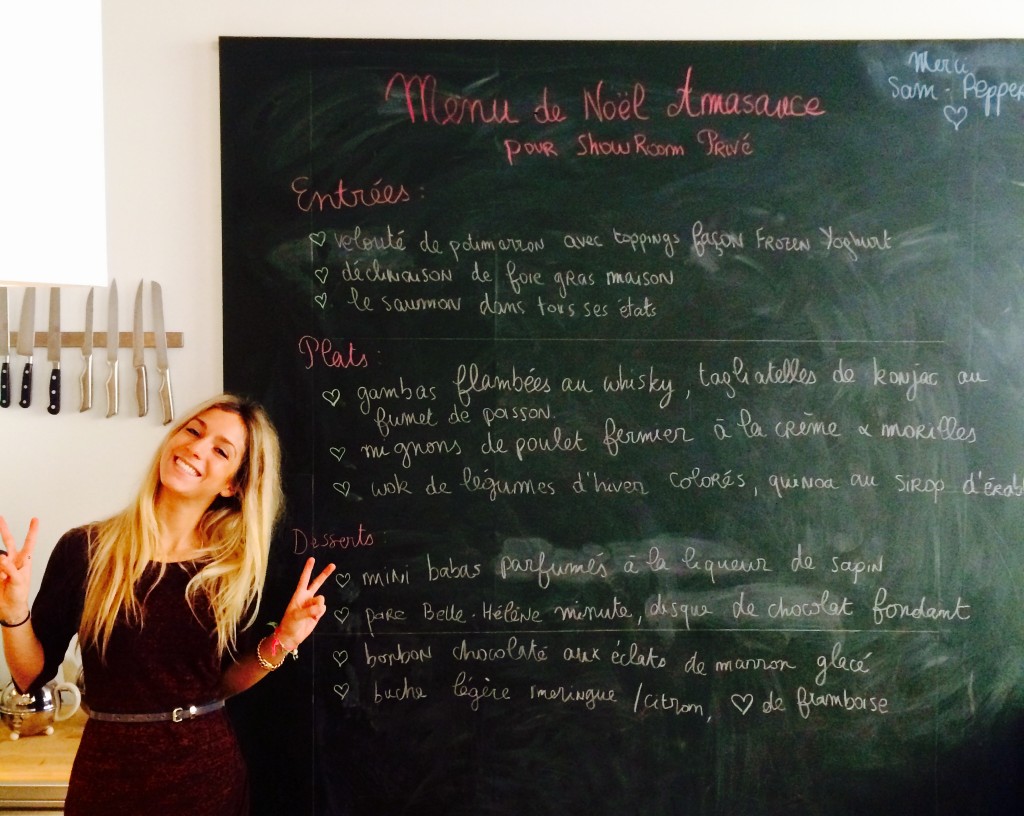 Merci
Sam-Pepper
♡
Menu de Noël Amasauce
pour ShowRoom Privé
Entrées :
♡ velouté de potimarron avec toppings façon Frozen Yoghurt
♡ déclinaison de foie gras maison
♡ le saumon dans tous ses états
Plats :
♡ gambas flambées au whisky, tagliatelles de konjac au
fumet de poisson
♡ mignons de poulet fermier à la crème & morilles
♡ wok de légumes d'hiver colorés, quinoa au sirop d'érable
Desserts :
♡ mini babas parfumés à la liqueur de sapin
♡ poire Belle-Hélène minute, disque de chocolat fondant
♡ bonbon chocolaté aux éclats de marron glacé
♡ buche légère meringue / citron, ♡ de framboise